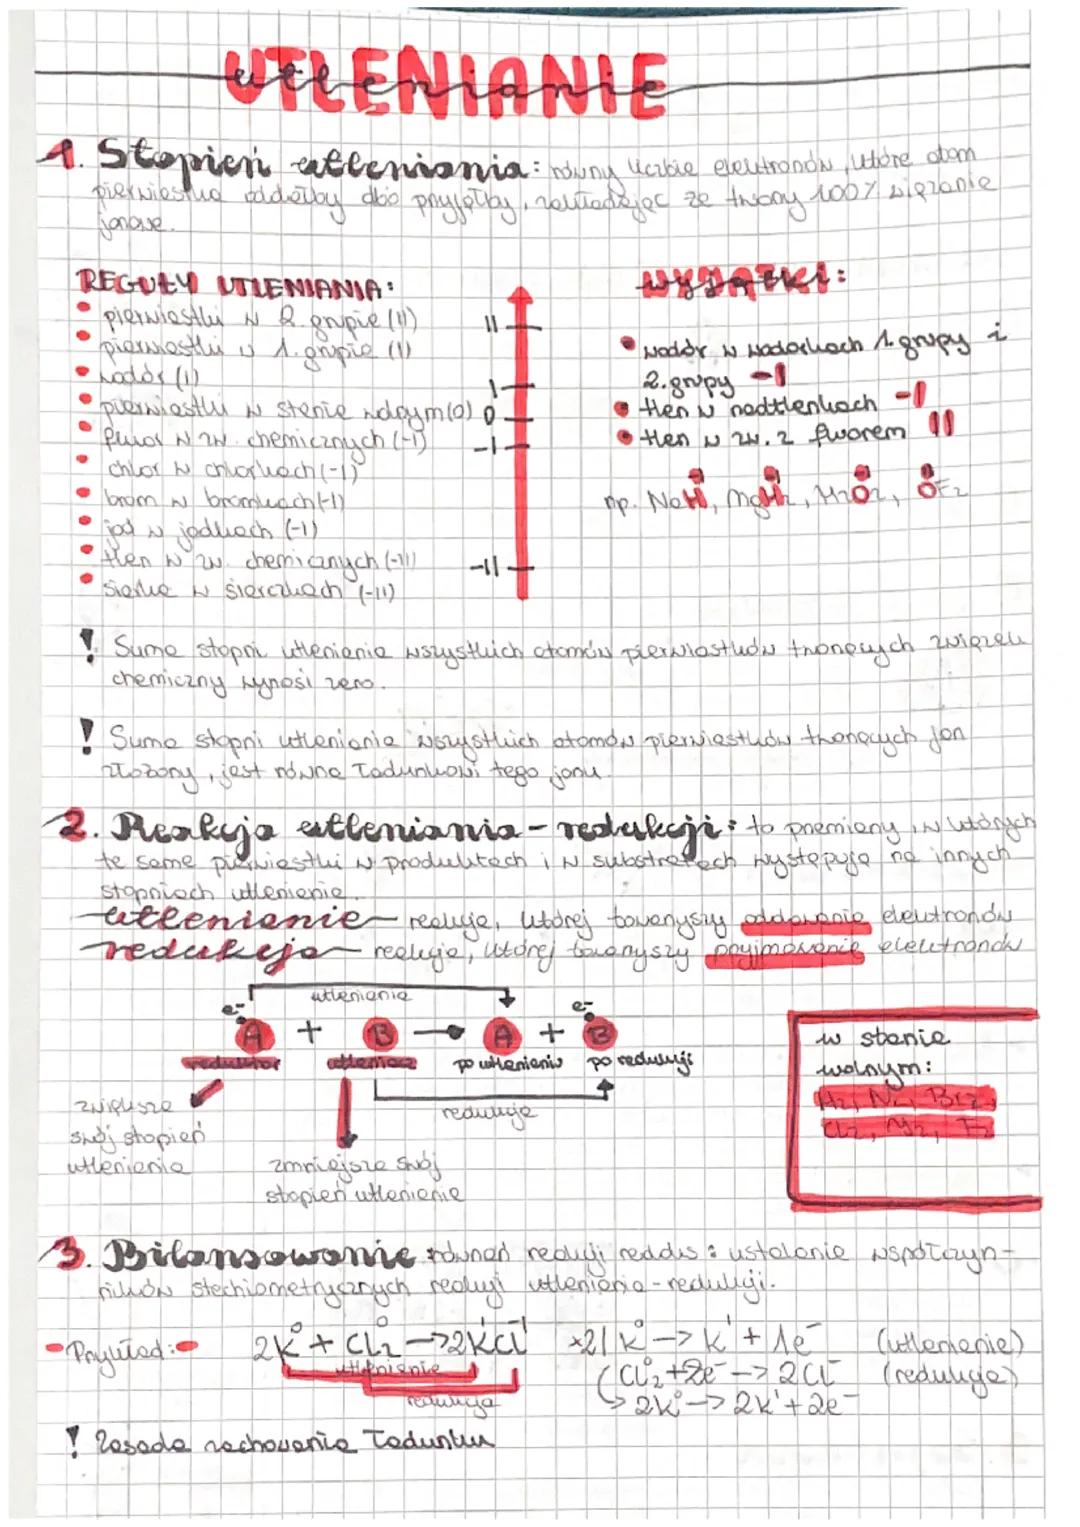 UTLENIANIE
utlenianie
1. Stopień utleniania: równy liczbie elektronów, które atom
pierwiastka oddałby albo przyjąłby, zakładając że tworzy 100% wiązanie
jonowe.
REGUŁY UTLENIANIA:
• pierwiastki w 2. grupie (II)
• pierwiastki w 1. grupie (I)
• wodór (I)
• pierwiastki w stanie wolnym (0)
• fluor w zw. chemicznych (-I)
• chlor w chlorkach (-I)
• brom w bromkach (-I)
• jod w jodkach (-I)
• tlen w zw. chemicznych (-II)
• siarka w siarczkach (-II)
II
I
0
-I
-II
wyjątki:
• wodór w wodorkach 1. grupy i
2. grupy -I
• tlen w nadtlenkach -I
• tlen w zw. z fluorem II
np. NaH, MgH2, H2O2, OF2
! Suma stopni utlenienia wszystkich atomów pierwiastków tworzących związek
chemiczny wynosi zero.
! Suma stopni utlenienia wszystkich atomów pierwiastków tworzących jon
złożony, jest równa ładunkowi tego jonu.
2. Reakcja utleniania-redukcji: to przemiany, w których
te same pierwiastki w produktach i w substratach występują na innych
stopniach utlenienia.
utlenianie - reakcja, której towarzyszy oddawanie elektronów
redukcja - reakcja, której towarzyszy przyjmowanie elektronów
utlenianie
e- e-
A + B → A + B
reduktor utleniacz po utlenianiu po redukcji
redukcja
zwiększa
swój stopień
utlenienia
zmniejsza swój
stopień utlenienia
w stanie
wolnym:
H2, N2, Br2,
Cl2, I2, F2
3. Bilansowanie równań reakcji redoks: ustalanie współczyn-
ników stechiometrycznych reakcji utleniania-redukcji.
- Przykład:
2K⁰ + Cl₂⁰ → 2KᴵCl⁻ᴵ ×2| K⁰ → Kᴵ + 1e⁻ (utlenianie)
utlenianie
Cl₂⁰ + 2e⁻ → 2Cl⁻ (redukcja)
redukcja
2K⁰ → 2Kᴵ + 2e⁻
! Zasada zachowania ładunku